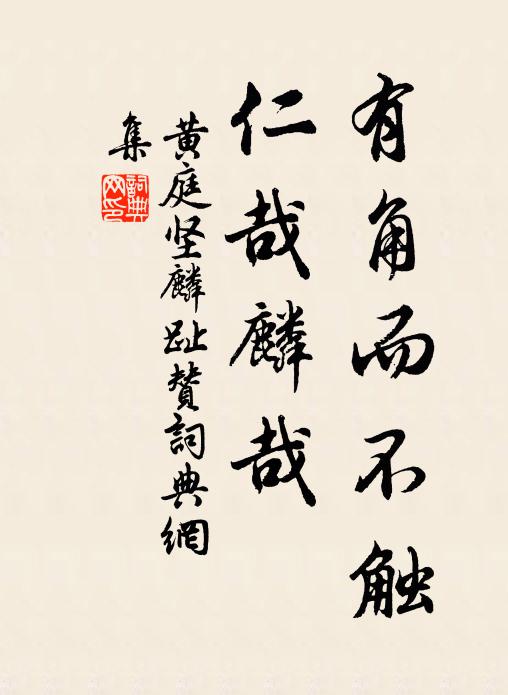 有角而不触
仁哉麟哉
黄庭坚麟趾赞詞典網
集
詞典網印